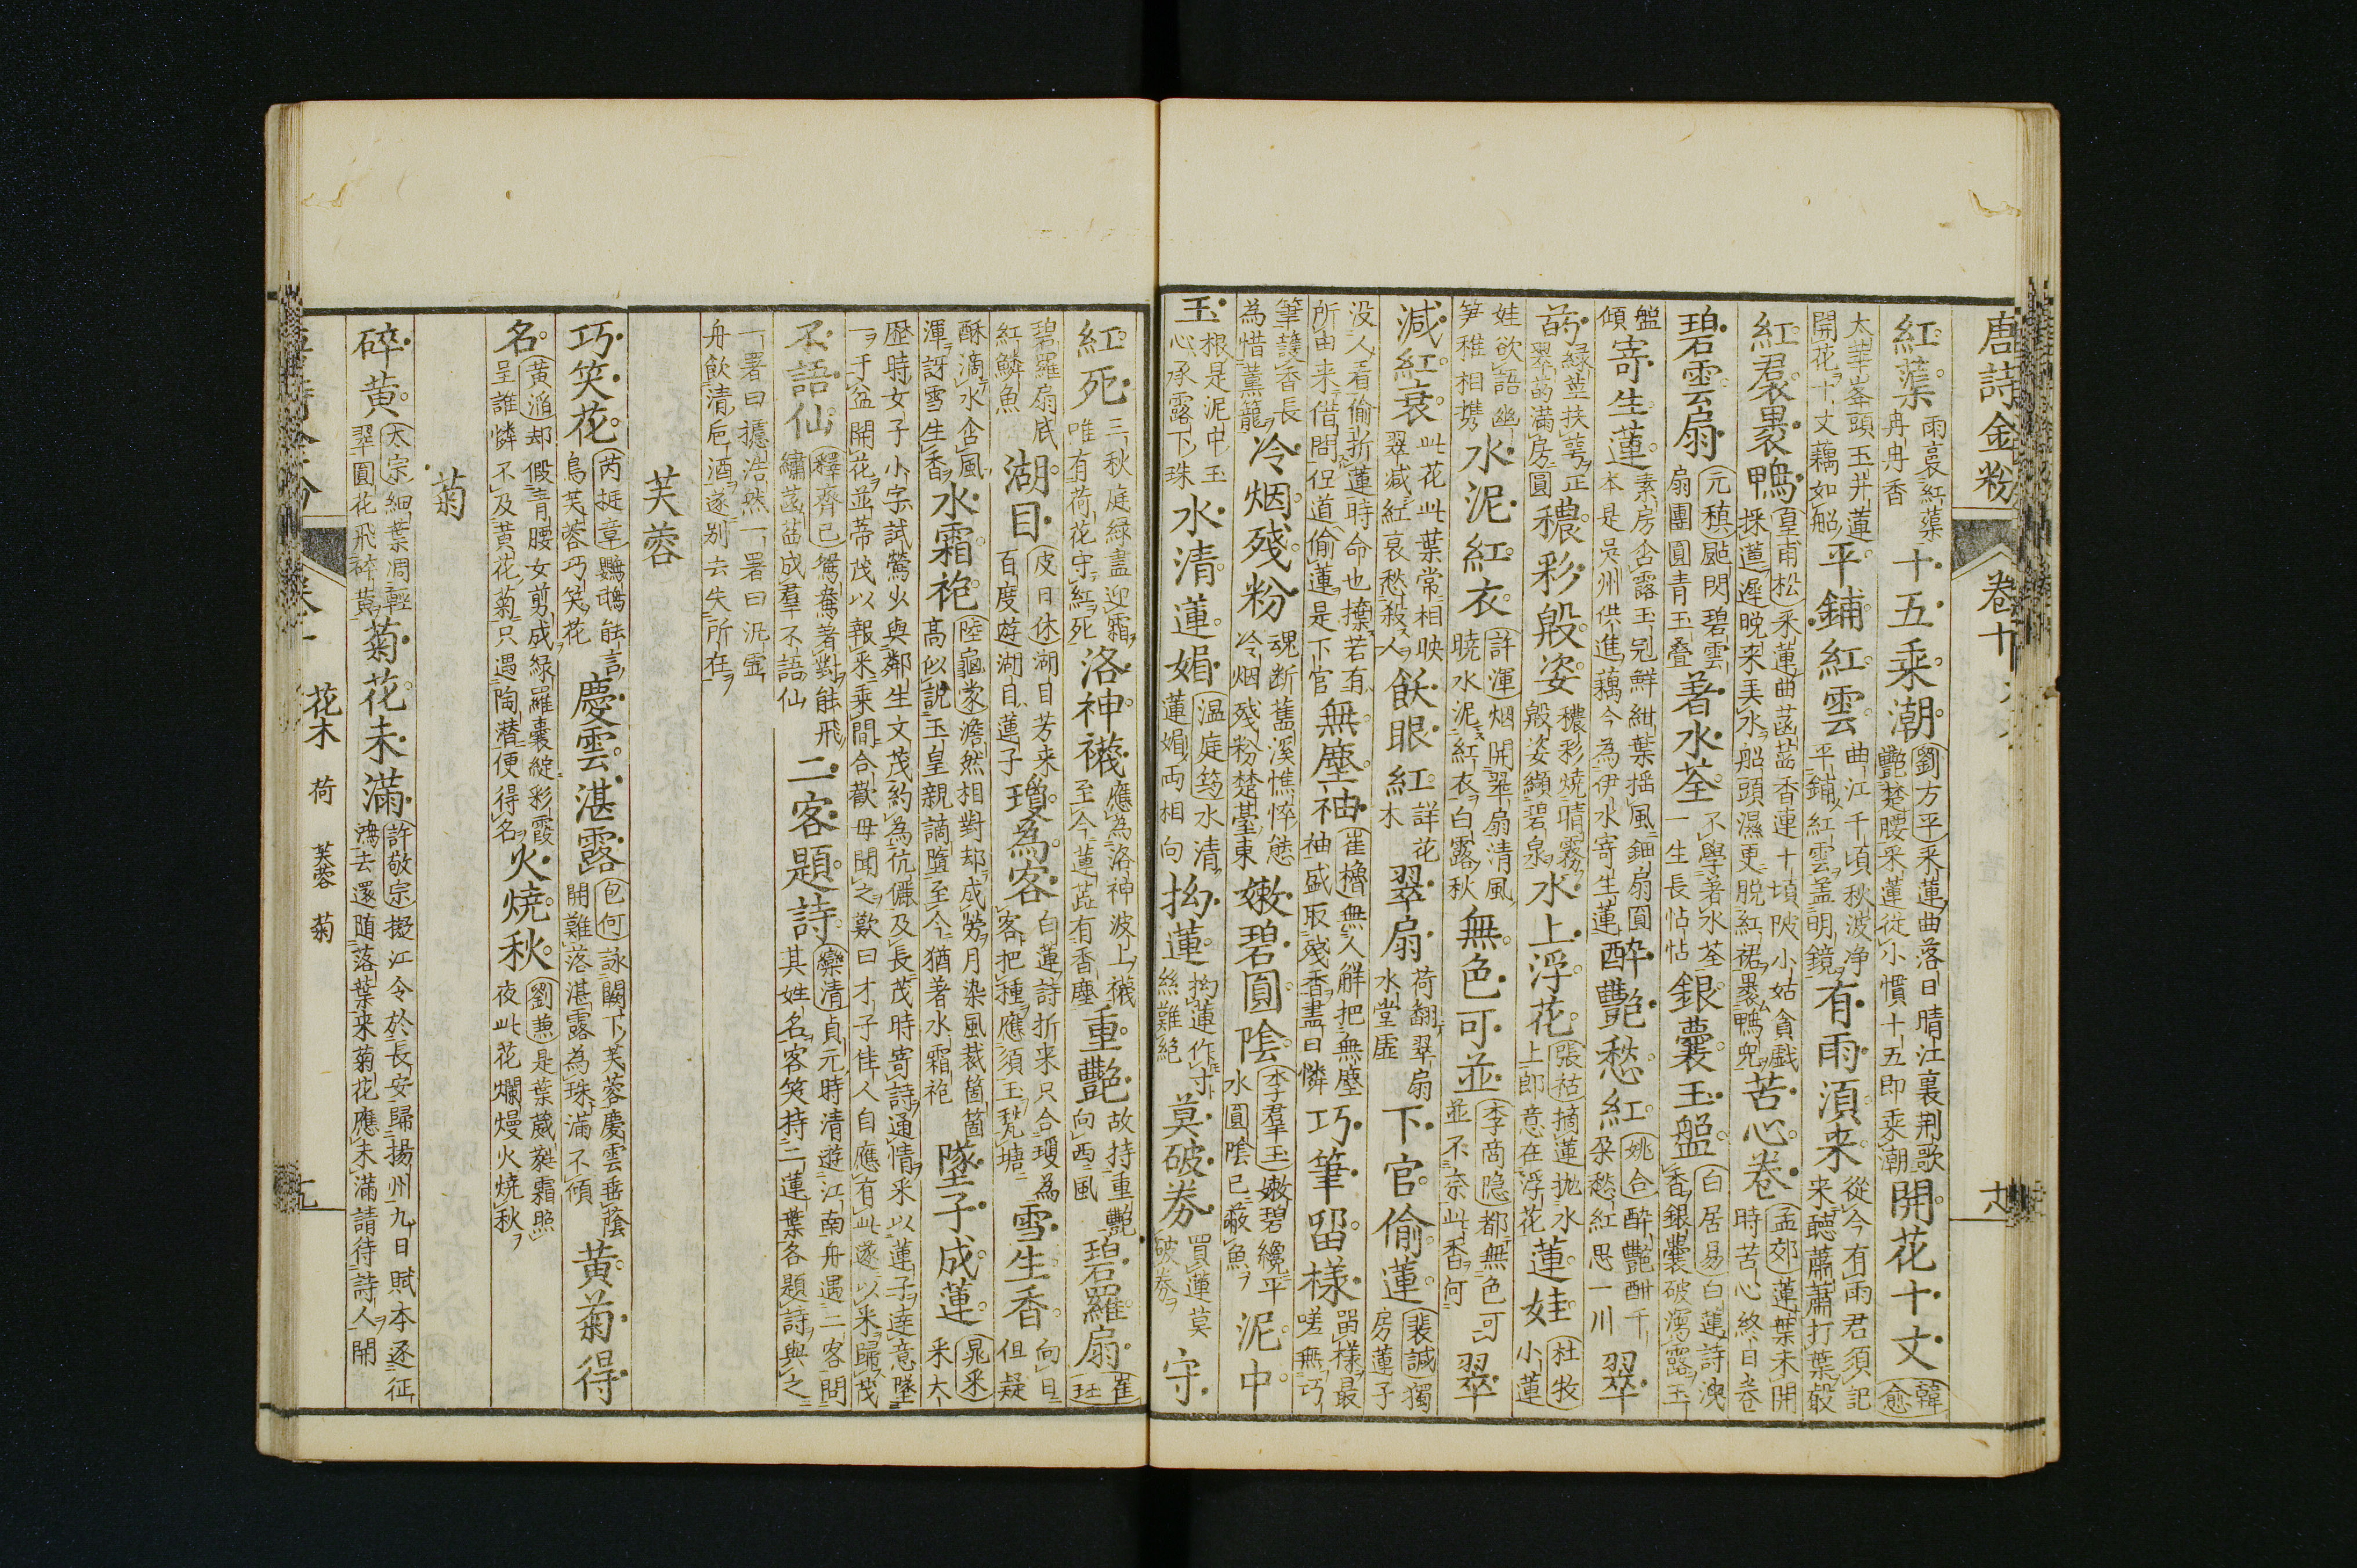 唐詩金粉 卷十 十八
紅蕖 雨裛紅蕖冉冉香 十五乘潮 劉方平 采蓮曲落日晴江裏荆歌艷楚腰采蓮從小慣十五即乘潮 開花十丈 韓愈
太華峯頭玉井蓮開花十丈藕如船 平鋪紅雲 曲江千頃秋波净平鋪紅雲盖明鏡 有雨湏来 從今有雨君須記来聽蕭蕭打葉聲
紅裠裹鴨 皇甫松 采蓮曲菡萏香連十頃陂小姑貪戱採蓮遲晚来弄水船頭濕更脱紅裙裹鴨兒 苦心卷 孟郊 蓮葉未開時苦心終日卷
碧雲扇 元稹 颭閃碧雲扇團圓青玉叠 著水荃 不學著水荃一生長怗怗 銀囊玉盤 白居易 白蓮詩洩香銀囊破瀉露玉
盤傾 寄生蓮 素房含露玉冠鮮紺葉揺風鈿扇圓本是吳州供進藕今為伊水寄生蓮 醉艷愁紅 姚合 醉艷酣千朶愁紅思一川 翠
菂 緑莖扶萼正翠菂満房圓 穠彩毀姿 穠彩燒晴霧毀姿纈碧泉 水上浮花 張祜 摘蓮抛水上郎意在浮花 蓮娃 杜牧 小蓮
娃欲語幽笋稚相携 水泥紅衣 許渾 烟開翠扇清風曉水泥紅衣白露秋 無色可並 李商隐 都無色可並不奈此香何 翠
減紅衰 此花此葉常相映翠減紅衰愁殺人 飫眼紅 詳花木 翠扇 荷翻翠扇水堂虚 下官偷蓮 裴諴 獨房蓮子
没人看偷折蓮時命也㩀若有所由来借問伹道偷蓮是下官 無塵袖 崔櫓 無人解把無塵袖盛取殘香盡日憐 巧筆留様 留様最嗟無巧
筆護香長為惜薫籠 冷烟殘粉 魂断舊溪憔悴態冷烟殘粉楚臺東 嫩碧圓陰 李羣玉 嫩碧纔平水圓陰已蔽魚 泥中
玉 根是泥中玉心承露下珠 水清蓮娟 温庭筠 水清蓮娟两相向 拗蓮 拗蓮作寸絲難絶 莫破券 買蓮莫破券 守
紅死 三秋庭緑盡迎霜唯有荷花守紅死 洛神襪 應為洛神波上襪至今蓮蕋有香塵 重艷 故持重艷向西風 碧羅扇 崔珏
碧羅扇底紅鱗魚 湖目 皮日休 湖目芳来百度遊湖目蓮子 瓊為客 白蓮詩折来只合瓊為客把種應須玉甃塘 雪生香 向日但疑
酥滴水含風渾訝雪生香 水霜袍 陸龜蒙 澹然相對却成勞月染風裁箇箇高似說玉皇親謫墮至今猶著水霜袍 墜子成蓮 晁采 采太
歷時女子小字試鶯少與鄰生文茂約為伉儷及長茂時寄詩通情采以蓮子逹意墜一于盆開花並蒂茂以報采乘間合歡母聞之歎曰才子佳人自應有此遂以采歸茂
不語仙 釋齊已 鴛鴦著對能飛繍菡萏成羣不語仙 二客題詩 欒清 貞元時清遊江南舟遇二客問其姓名客笑持二蓮葉各題詩與之
一署曰攄浩然一署曰汎虚舟飲清巵酒遂别去失所在
芙蓉
巧笑花 芮挺章 鸚鵡能言鳥芙蓉巧笑花 慶雲湛露 包何 詠闕下芙蓉慶雲垂蔭開難落湛露為珠滿不傾 黄菊得
名 黄滔 却假青腰女剪成緑羅囊綻彩霞呈誰憐不及黄花菊只遇陶潜便得名 火燒秋 劉兼 是葉葳蕤霜照夜此花爛熳火燒秋
菊
碎黄 太宗 細葉凋輕翠圓花飛碎黄 菊花未滿 許敬宗 擬江令於長安歸揚州九日賦本逐征鴻去還随落葉来菊花應未滿請待詩人開
花木 荷 芙蓉 菊